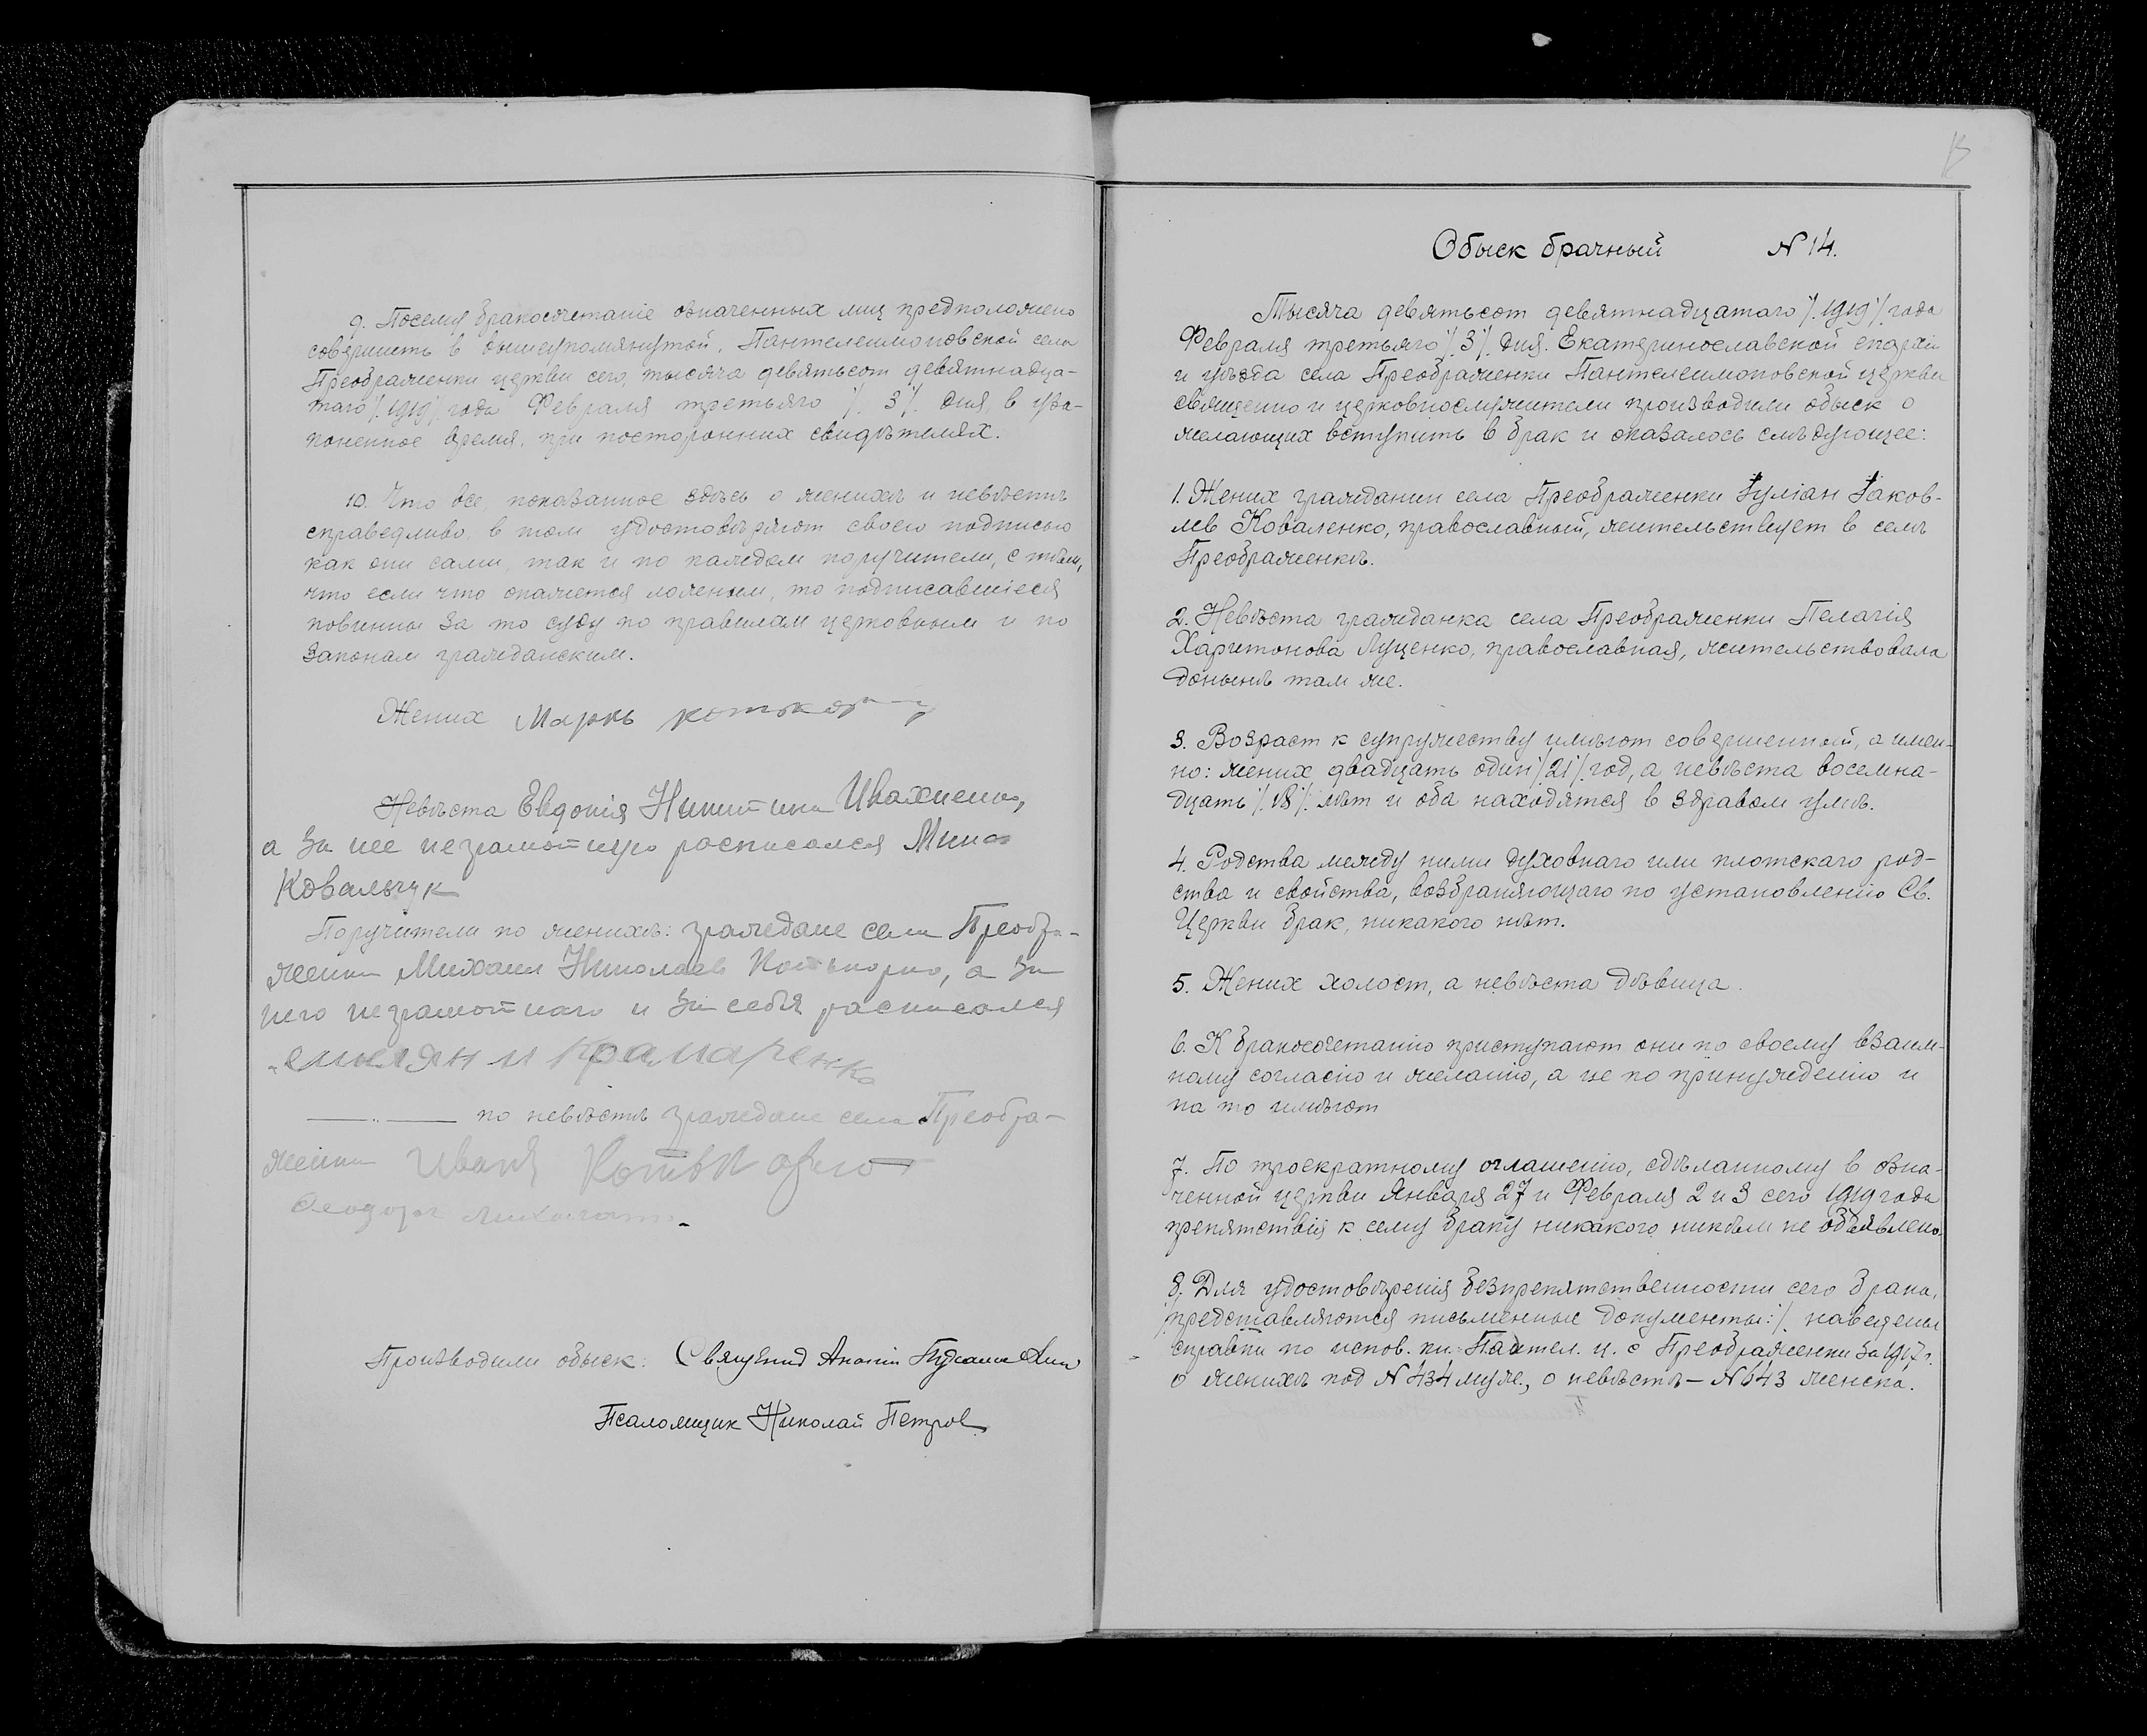 9. Посему бракосочетаніе означенных лиц предположено
совершить в вышеупомянутой, Пантелеимоновской села
Преображенки церкви сего, тысяча девятьсот девятнадца-
таго ⁒ 1919 ⁒ года Февраля третьяго ⁒ 3 ⁒ дня, в уза-
коненное время, при посторонних свидѣтелях.
10. Что все, показанное здѣсь о женихѣ и невѣстѣ
справедливо, в том удостовѣряют своею подписью
как они сами, так и по каждом поручители, с тѣм,
что если что окажется ложным, то подписавшіеся
повинны за то суду по правилам церковным и по
законам гражданским.
Жених Маркъ
Невѣста Евдокія Никитина Ивахненко,
а за нее неграмотную расписался Мина
Ковальчук
Поручители по женихѣ: граждане села Преобра-
женки Михаил Николаев Котькорно, а за
него неграмотнаго и за себя расписался
Крамаренко
по невѣстѣ граждане села Преобра-
женки Иванъ
Феодоръ
Производили обыск: Священник
Псаломщик Николай Петров
Обыск брачный N 14.
Тысяча девятьсот девятнадцатаго ⁒ 1919 ⁒ года
Февраля третьяго ⁒ 3 ⁒ дня. Екатеринославской епархіи
и уѣзда села Преображенки Пантелеимоновской церкви
священно и церковнослужители производили обыск о
желающих вступить в брак и оказалось слѣдующее:
1. Жених гражданин села Преображенки Іуліан Іаков-
лев Коваленко, православный, жительствует в селѣ
Преображенкѣ.
2. Невѣста гражданка села Преображенки Пелагія
Харитонова Луценко, православная, жительствовала
донынѣ там же.
3. Возраст к супружеству имѣют совершенный, а имен-
но: жених двадцать один ⁒ 21 ⁒ год, а невѣста восемна-
дцать ⁒ 18 ⁒ лѣт и оба находятся в здравом умѣ.
4. Родства между ними духовнаго или плотскаго род-
ства и свойства, возбраняющаго по установленію Св.
Церкви брак, никакого нѣт.
5. Жених холост, а невѣста дѣвица.
6. К бракосочетанію приступают они по своему взаим-
ному согласію и желанію, а не по принужденію и
на то имѣют
7. По троекратному оглашенію, сдѣланному в озна-
ченной церкви Января 27 и Февраля 2 и 3 сего 1919 года
препятствія к сему браку никакого никѣм не объявлено.
8. Для удостовѣренія безпрепятственности сего брака,
представляются письменные документы: ⁒ наведены
справки по испов. кн. Пантел. ц. с Преображенки за 1917 г.
о женихѣ под N 434 муж., о невѣстѣ — N 643 женск.